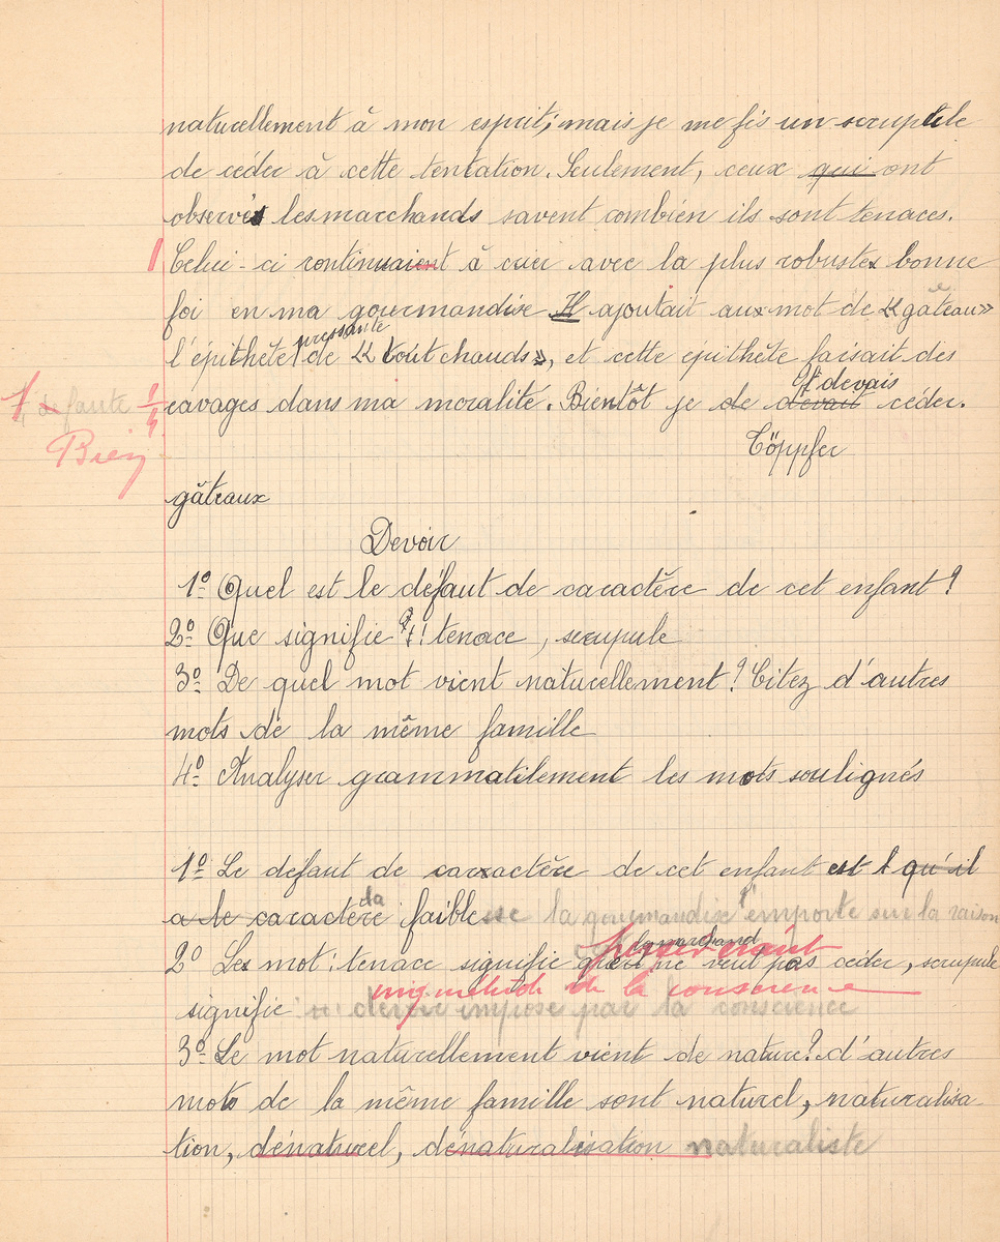 naturellement à mon esprit; mais je me fis un scrupule
de céder à cette tentation. Seulement, ceux qui ont
observés les marchands savent combien ils sont tenaces.
Celui-ci continuaient à crier avec la plus robustes bonne
foi en ma gourmandise Il ajoutait aux mot de « gâteau »
pressante
l'épithète de « tout chauds », et cette épithète faisait des
dus
1/2 faute
ravages dans ma moralité. Bientôt je de devait céder.
devais
Bien
Töppfer
gâteaux
Devoir
1º Quel est le défaut de caractère de cet enfant?
2º Que signifie : tenace, scrupule
3º De quel mot vient naturellement? Citez d'autres
mots de la même famille
4º Analyser grammatilement les mots soulignés
1º Le défaut de carractère de cet enfant est qu'il
a le caractère faiblesse la gourmandise l'emporte sur la raison
la
le marchand
2º Les mot: tenace signifie qui ne veut pas céder, scrupule
de la conscience
signifie: un devoir imposé par la conscience
3º Le mot naturellement vient de nature? d'autres
mots de la même famille sont naturel, naturalisa-
tion, dénaturel, dénaturalisation naturaliste